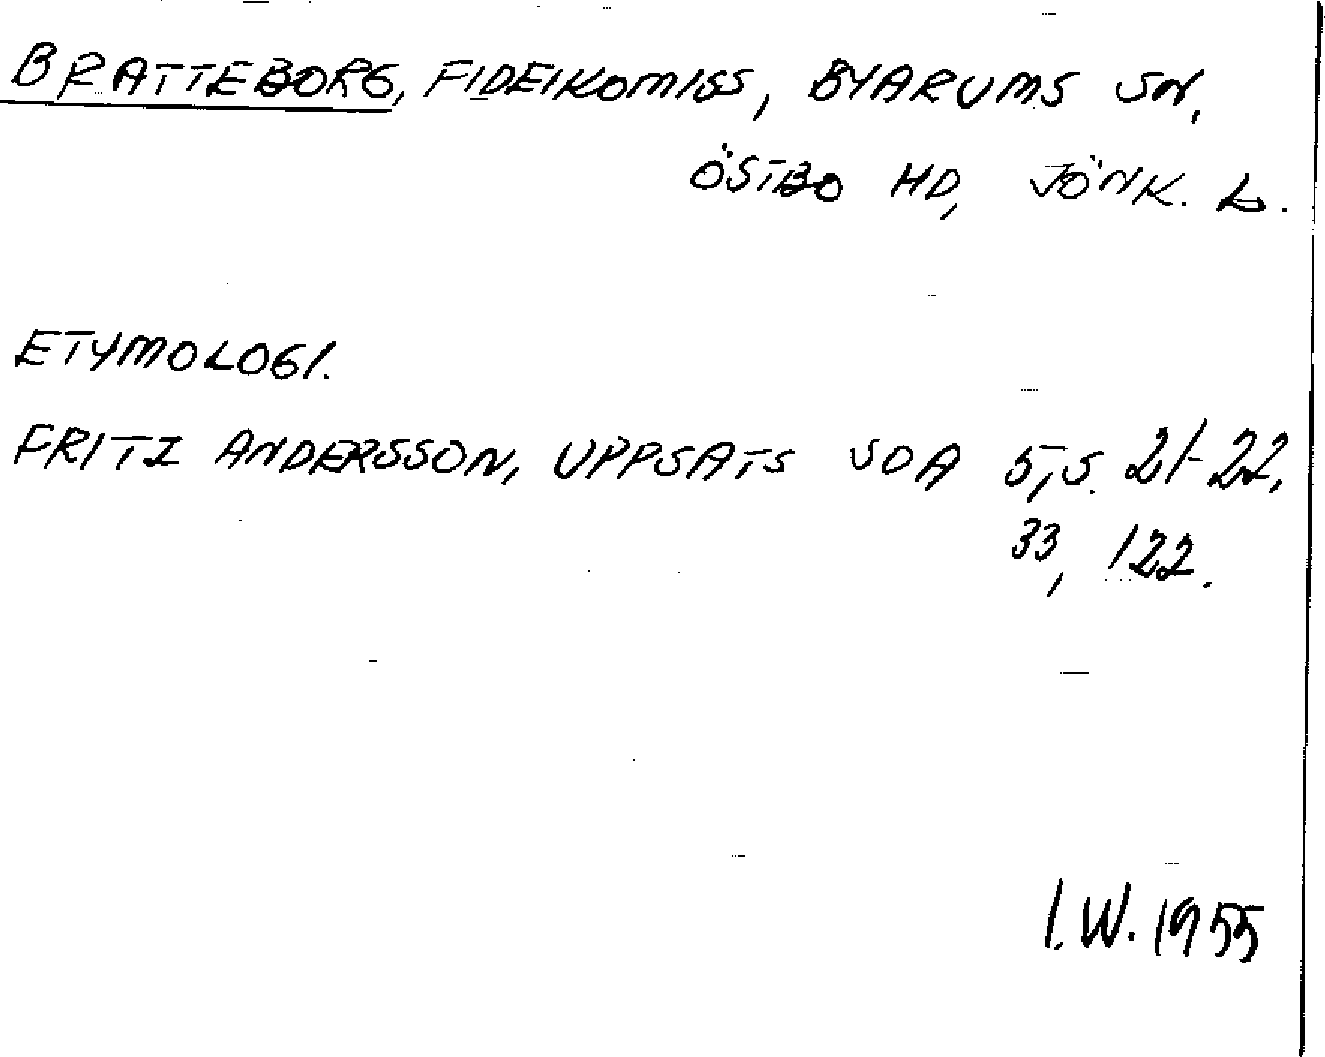 BRATTEBORG, FIDEIKOMISS, BYARUMS SN,
ÖSTBO HD, JÖNK. L.
ETYMOLOGI.
FRITZ ANDERSSON, UPPSATS SOA 5, S. 21-22,
33, 122.
I.W. 1955